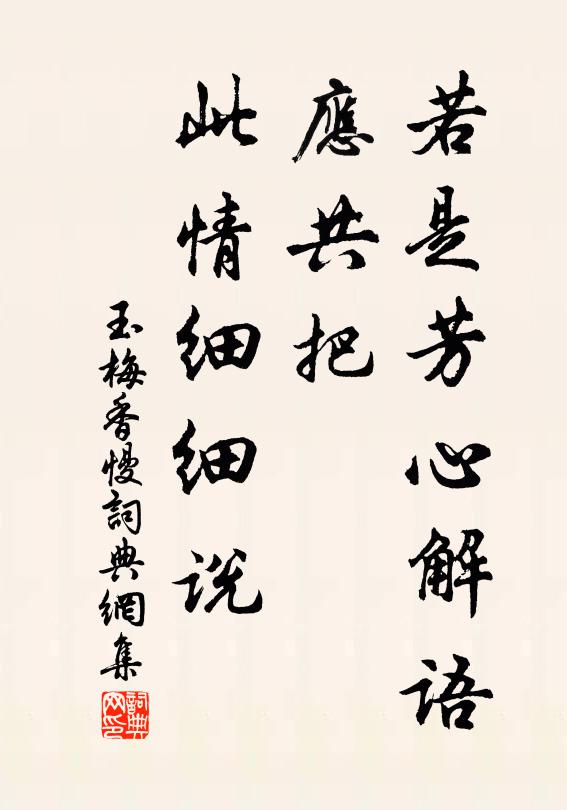 若是芳心解语
應共把
此情细细说
玉梅香慢詞典網集
詞典
网印